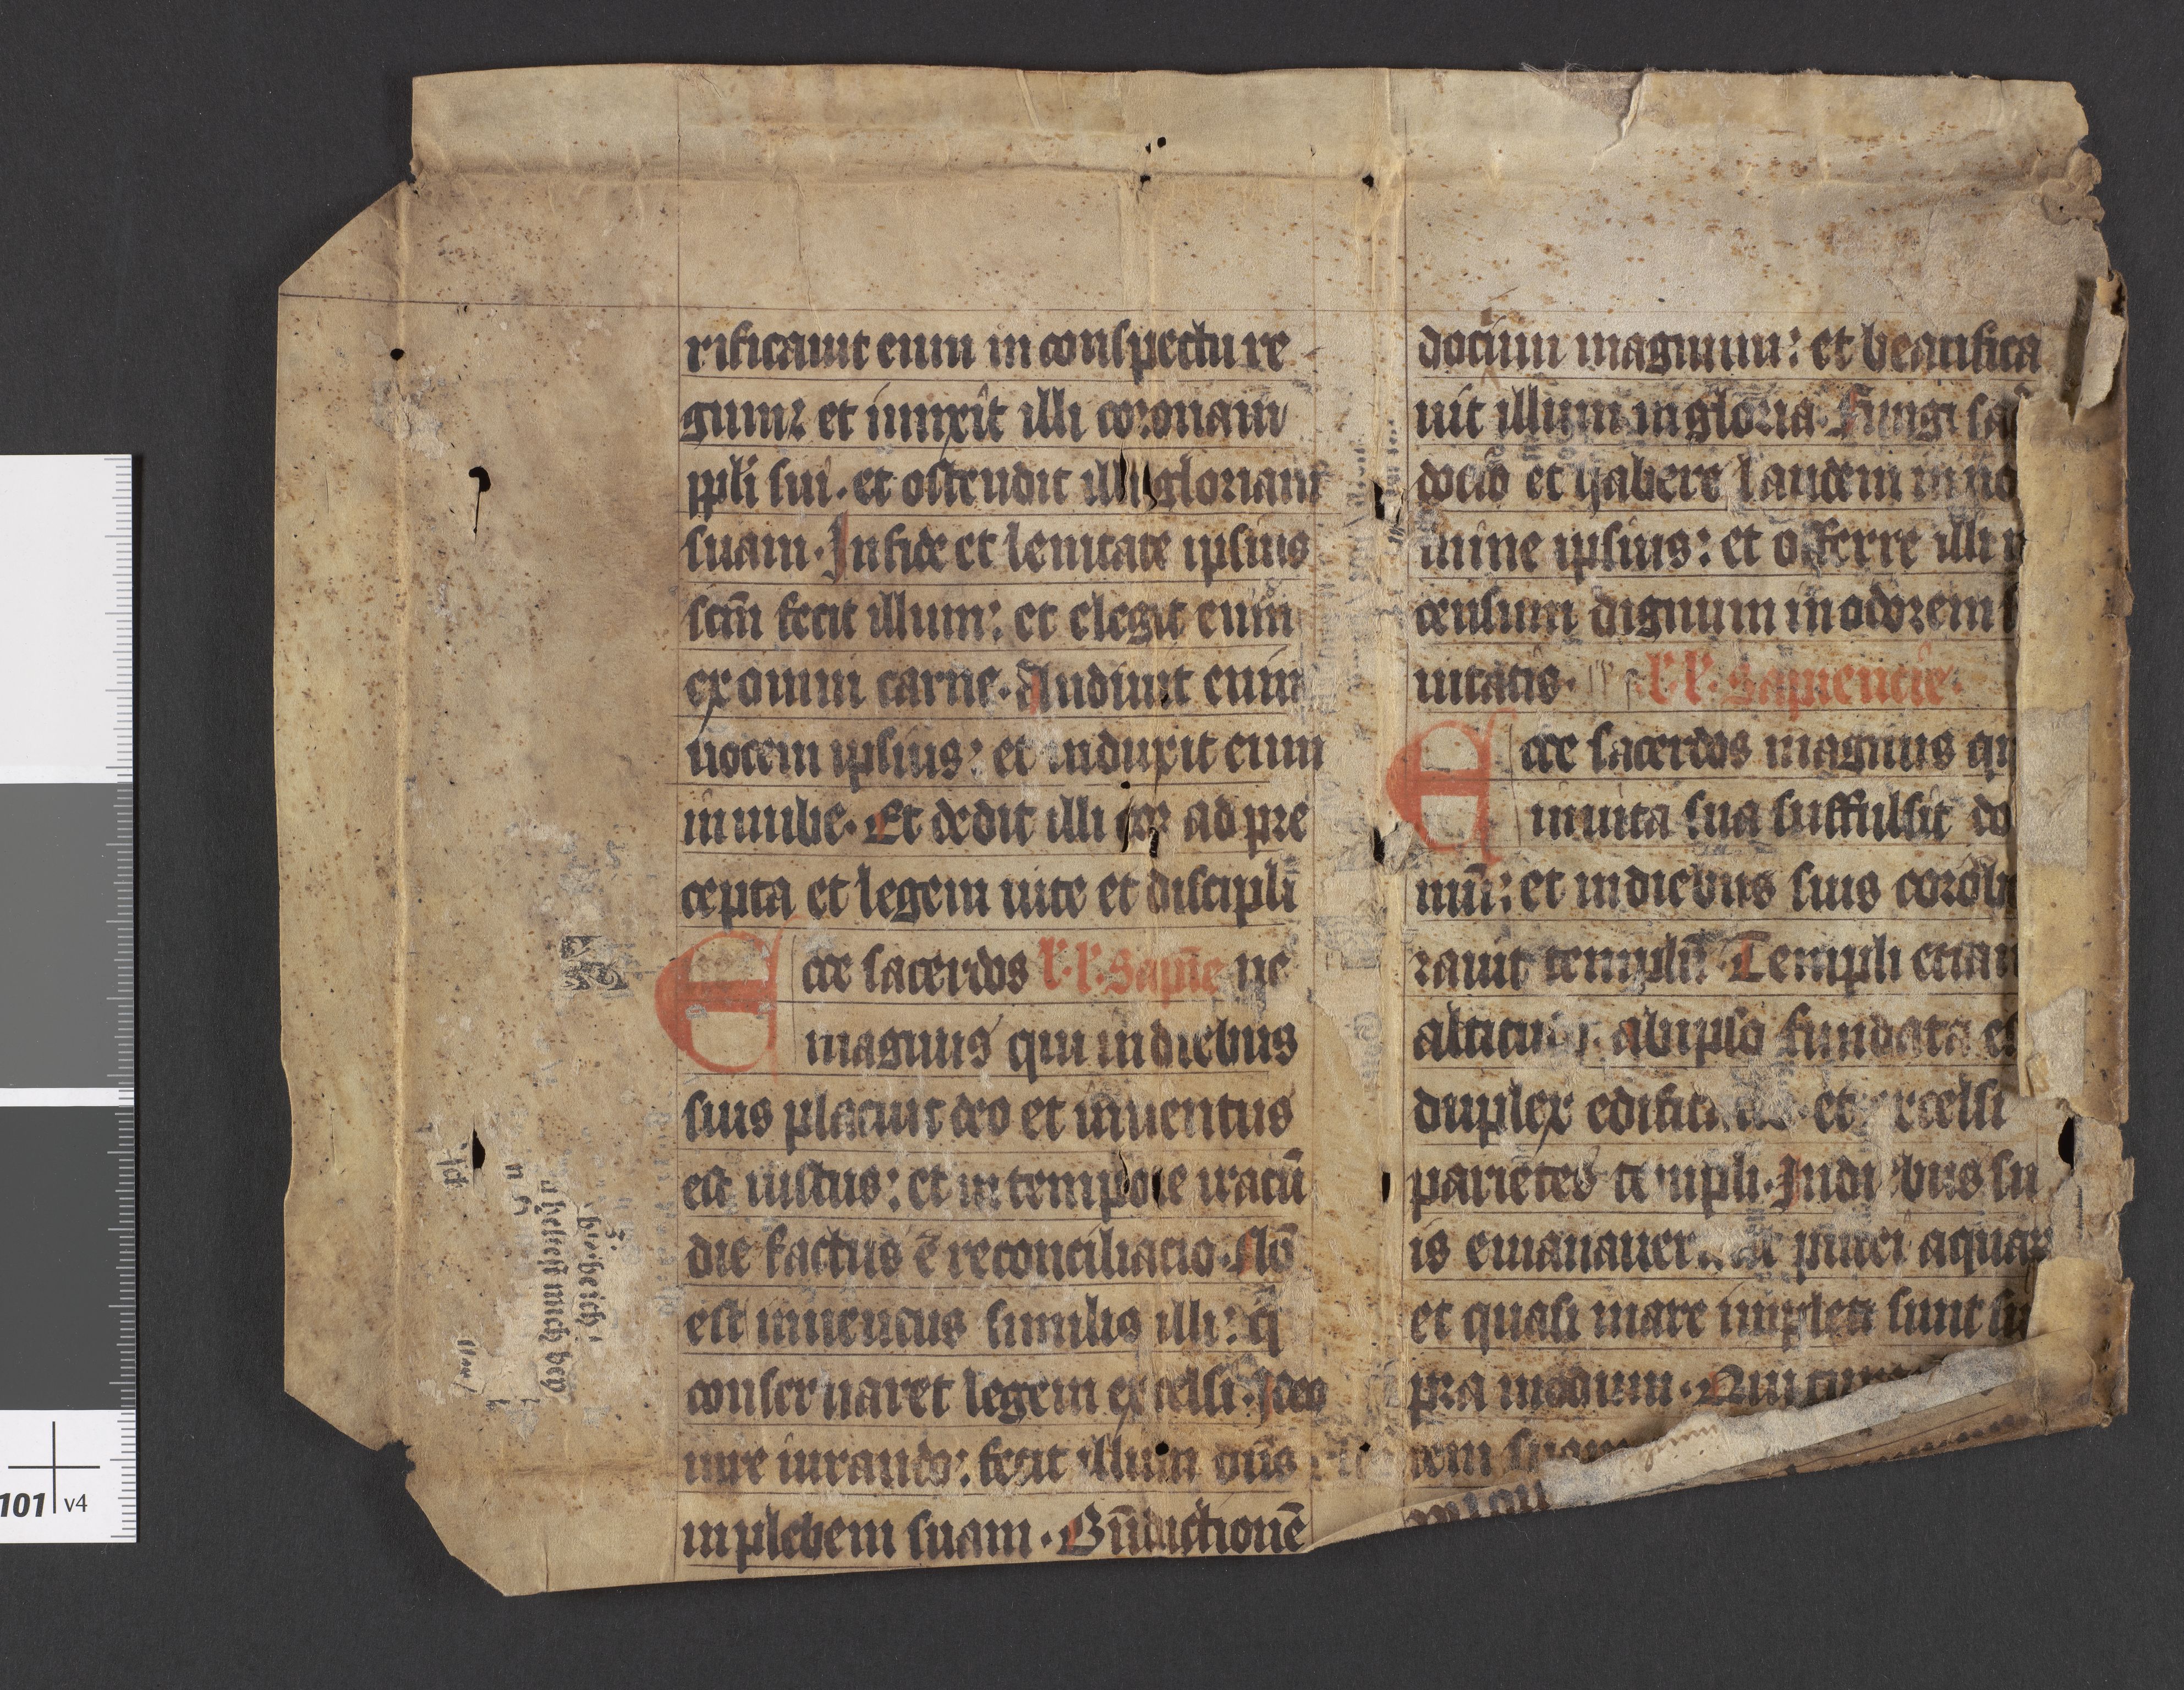 rificauit eum in conspectu re
gum: et iunxit illi coronam
ppli sui. et ostendit illi gloriam
suam. In fide et lenitate ipsius
scm̄ fecit illum: et elegit eum
ex omni carne. Audiuit enim
uocem ipsius: et induxit eum
in nube. Et dedit illi cor ad pre
cepta et legem uite et discipli
Ecce sacerdos l'. l'. Sapīe ne
magnus qui in diebus
suis placuit deo et inuentus
est iustus: et in tempore iracū
die factus ē reconciliacio. Nō
est inuentus similis illi: q̄
conseruaret legem excelsi. Ideo
iure iurando: fecit illum dn̄s
in plebem suam. Bn̄dictionē
docium magnum: et beatifica
uit illum in gloria. Fungi sac̄
docio et habere laudem in no
mine ipsius: et offerre illi
censum dignum in odorem
uitatis. l'. l'. Sapiencie.
Ecce sacerdos magnus qu
in uita sua suffulsit do
mū: et in diebus suis corobo
rauit templū. Templi etiam
altitudo ab ipso fundata es
duplex edificatio et excelsi
parietes templi. In diebus su
is emanauerunt putei aquar
et quasi mare impleti sunt su
pra modum. Qui
tem suam
bleibeich
helffest mich bey